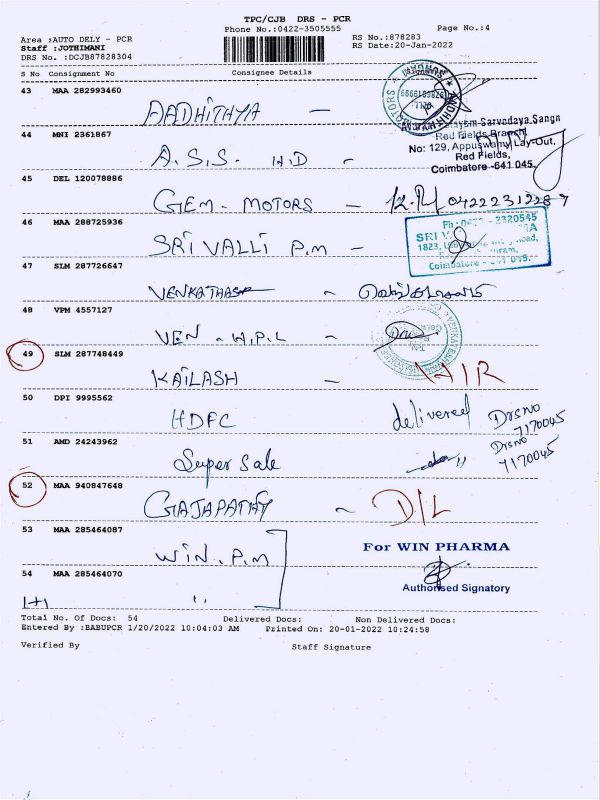 TPC/CJB DRS - PCR
Phone No.:0422-3505555 Page No.:4
Area :AUTO DELY - PCR RS No.:878283
Staff :JOTHIMANI RS Date:20-Jan-2022
DRS No. :DCJB87828304
S No Consignment No Consignee Details
43 MAA 282993460
AADHITHYA -
44 MNI 2361867
A.S.S. H.D -
Sarvodaya Sanga
Red Fields Branch
No: 129, Appuswamy Lay-Out,
Red Fields,
Coimbatore - 641 045.
45 DEL 120078886
GEM. MOTORS -
46 MAA 288725936
SRI VALLI P.M -
2320545
SRI V
1823,
Coimbatore
47 SLM 287726647
VENKATHASA - வெங்கடாசலம்
48 VPM 4557127
VEN. H.P.L -
49 SLM 287748449
KAILASH - H/R
50 DPI 9995562
HDFC delivered DRSNO
7170045
51 AMD 24243962
Super Sale DRSNO
7170045
52 MAA 940847648
GAJAPATHY ~ D/L
53 MAA 285464087
WIN. P.M
For WIN PHARMA
54 MAA 285464070
Authorised Signatory
Total No. Of Docs: 54 Delivered Docs: Non Delivered Docs:
Entered By :BABUPCR 1/20/2022 10:04:03 AM Printed On: 20-01-2022 10:24:58
Verified By Staff Signature